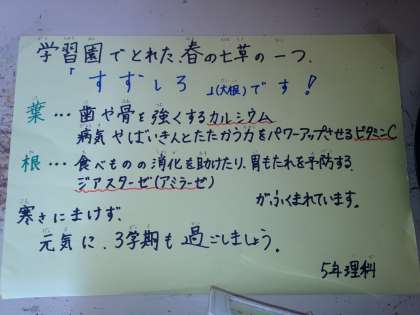 学習園でとれた、春の七草の一つ、
「すずしろ」(大根)です!
葉… 歯や骨を強くするカルシウム
病気やばいきんとたたかう力をパワーアップさせるビタミンC
根… 食べものの消化を助けたり、胃もたれを予防する、
ジアスターゼ(アミラーゼ)
がふくまれています。
寒さにまけず、
元気に、3学期も過ごしましょう。
5年理科